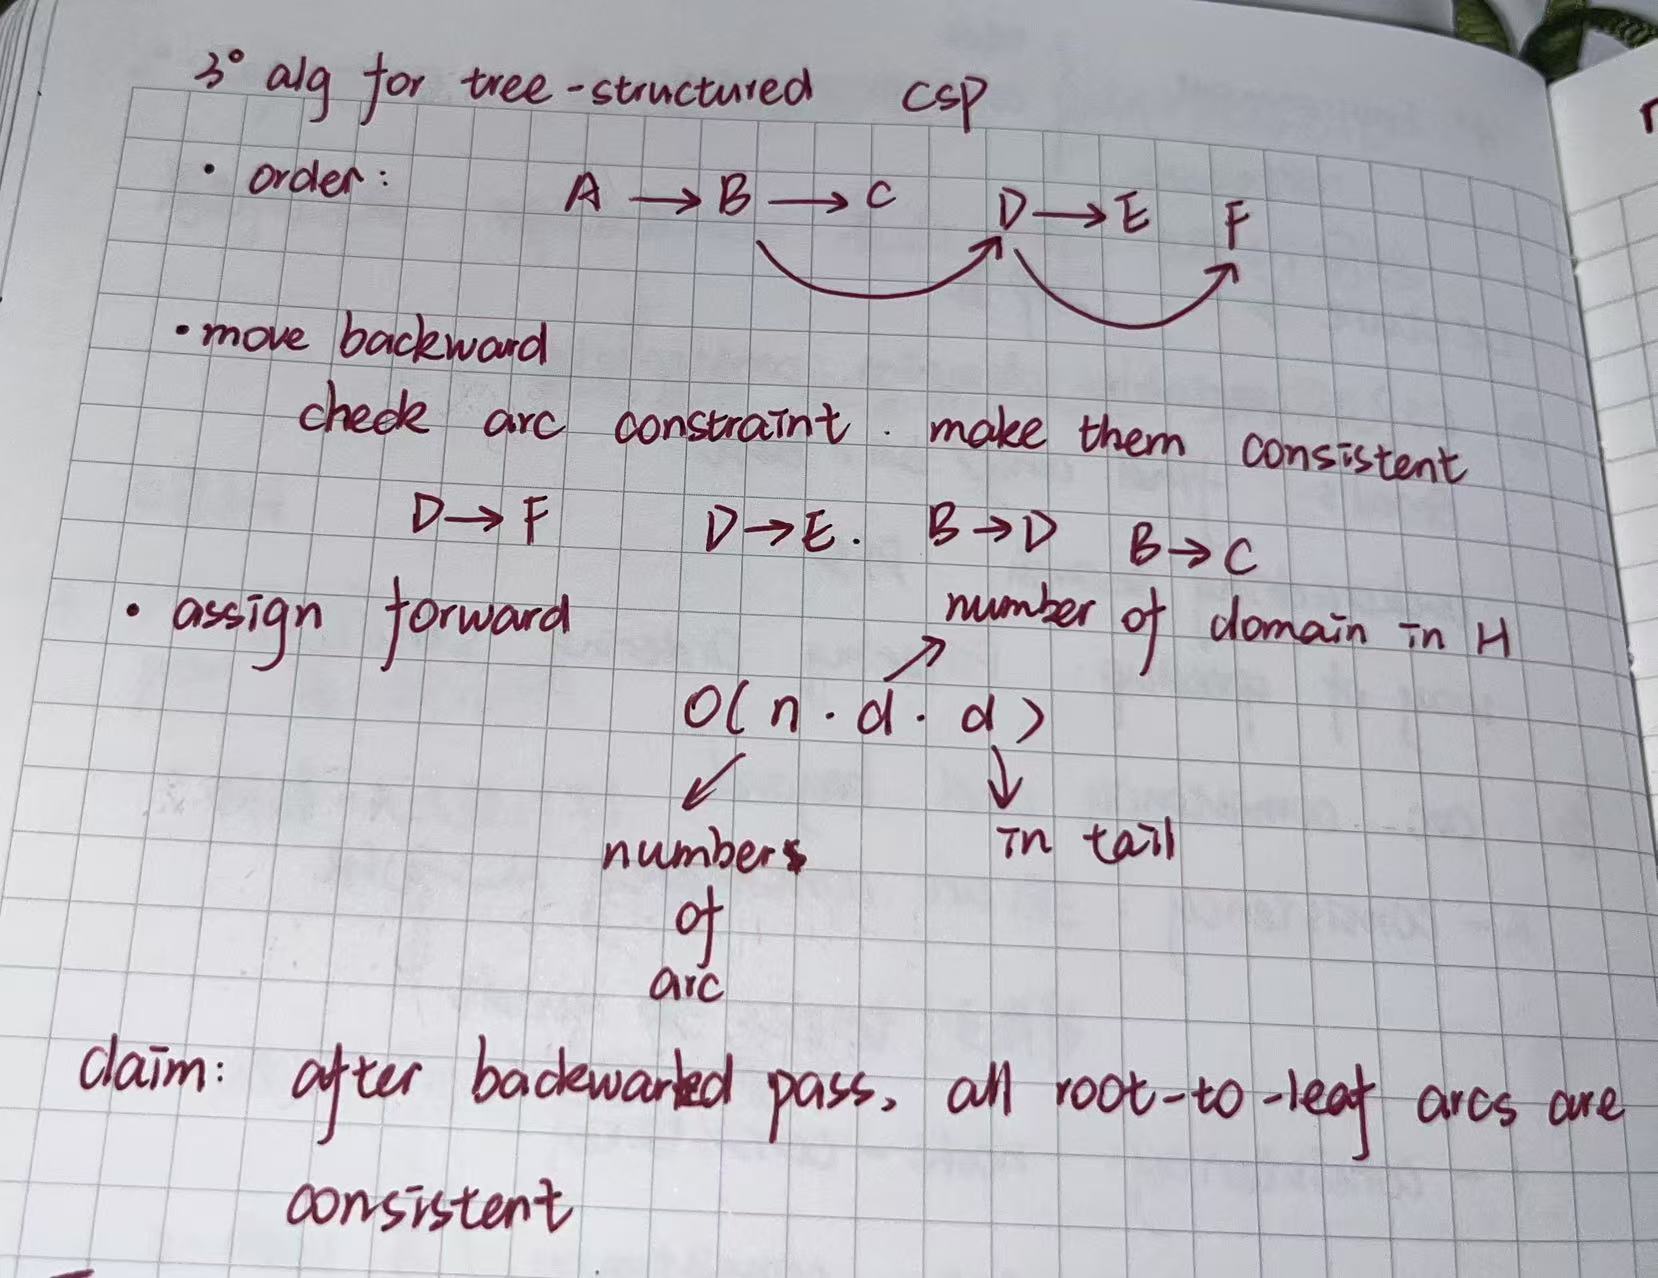 3° alg for tree-structured csp
• order: A → B → C D → E F
• move backward
check arc constraint. make them consistent
D → F D → E. B → D B → C
• assign forward
number of domain in H
O( n · d · d )
numbers of arc
in tail
claim: after backwarded pass, all root-to-leaf arcs are
consistent